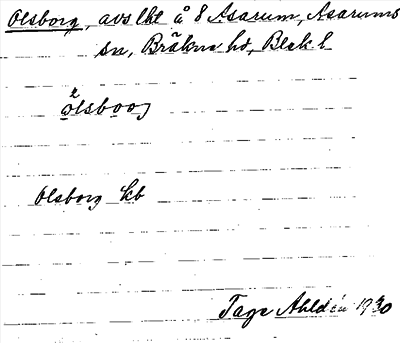 Olsborg, avs lht å 8 Asarum, Asarums
sn, Bräkne hd, Blek. l.
ölsbooj
Olsborg kb
Tage Ahldén 1930